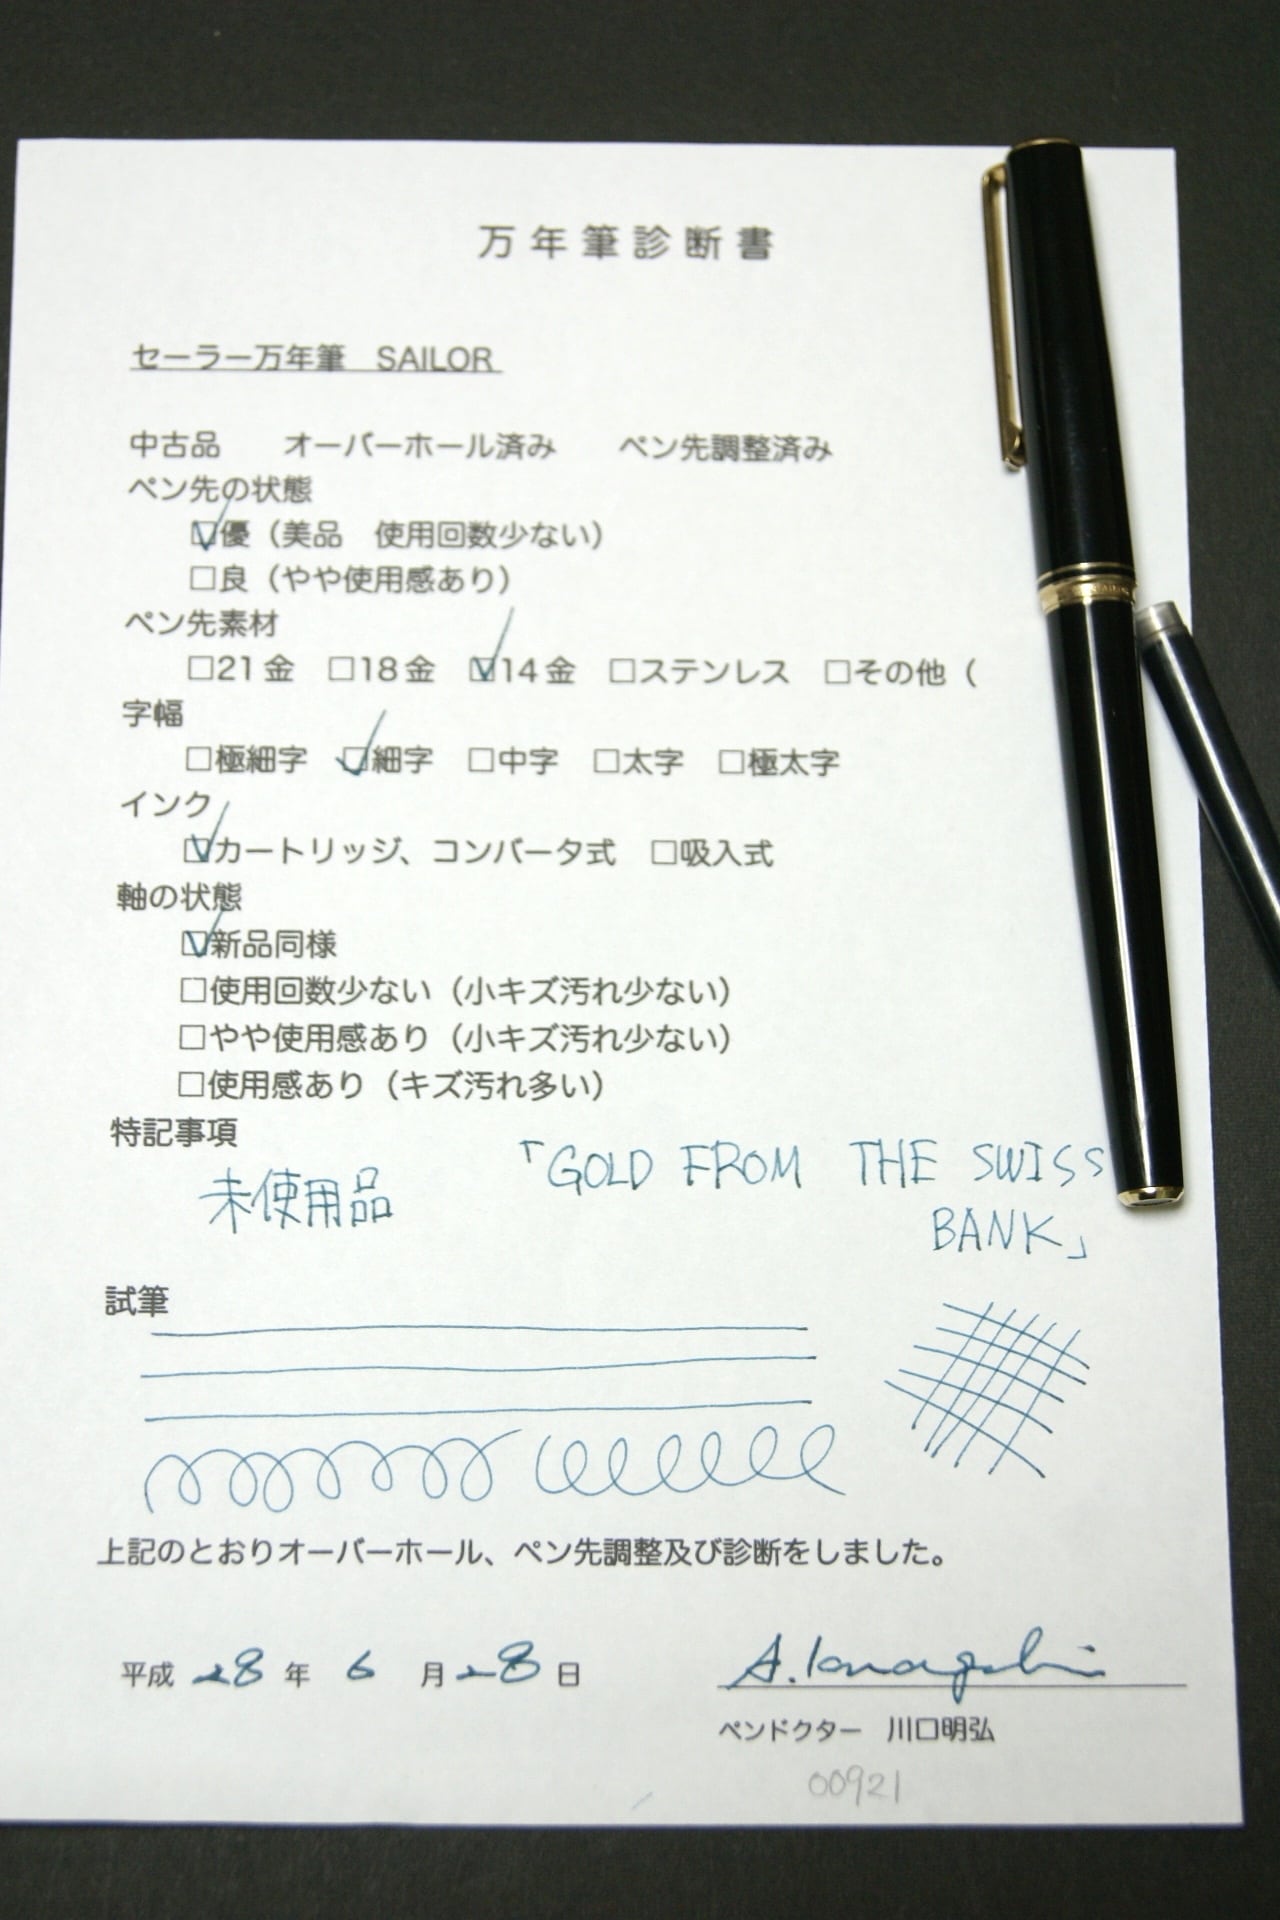 万年筆診断書
セーラー万年筆　SAILOR
中古品　　オーバーホール済み　　ペン先調整済み
ペン先の状態
☑優（美品　使用回数少ない）
□良（やや使用感あり）
ペン先素材
□21金　□18金　☑14金　□ステンレス　□その他（
字幅
□極細字　☑細字　□中字　□太字　□極太字
インク
☑カートリッジ、コンバータ式　□吸入式
軸の状態
☑新品同様
□使用回数少ない（小キズ汚れ少ない）
□やや使用感あり（小キズ汚れ少ない）
□使用感あり（キズ汚れ多い）
特記事項
未使用品　「GOLD FROM THE SWISS
BANK」
試筆
上記のとおりオーバーホール、ペン先調整及び診断をしました。
平成 28 年 6 月 28 日
ペンドクター　川口明弘
00921